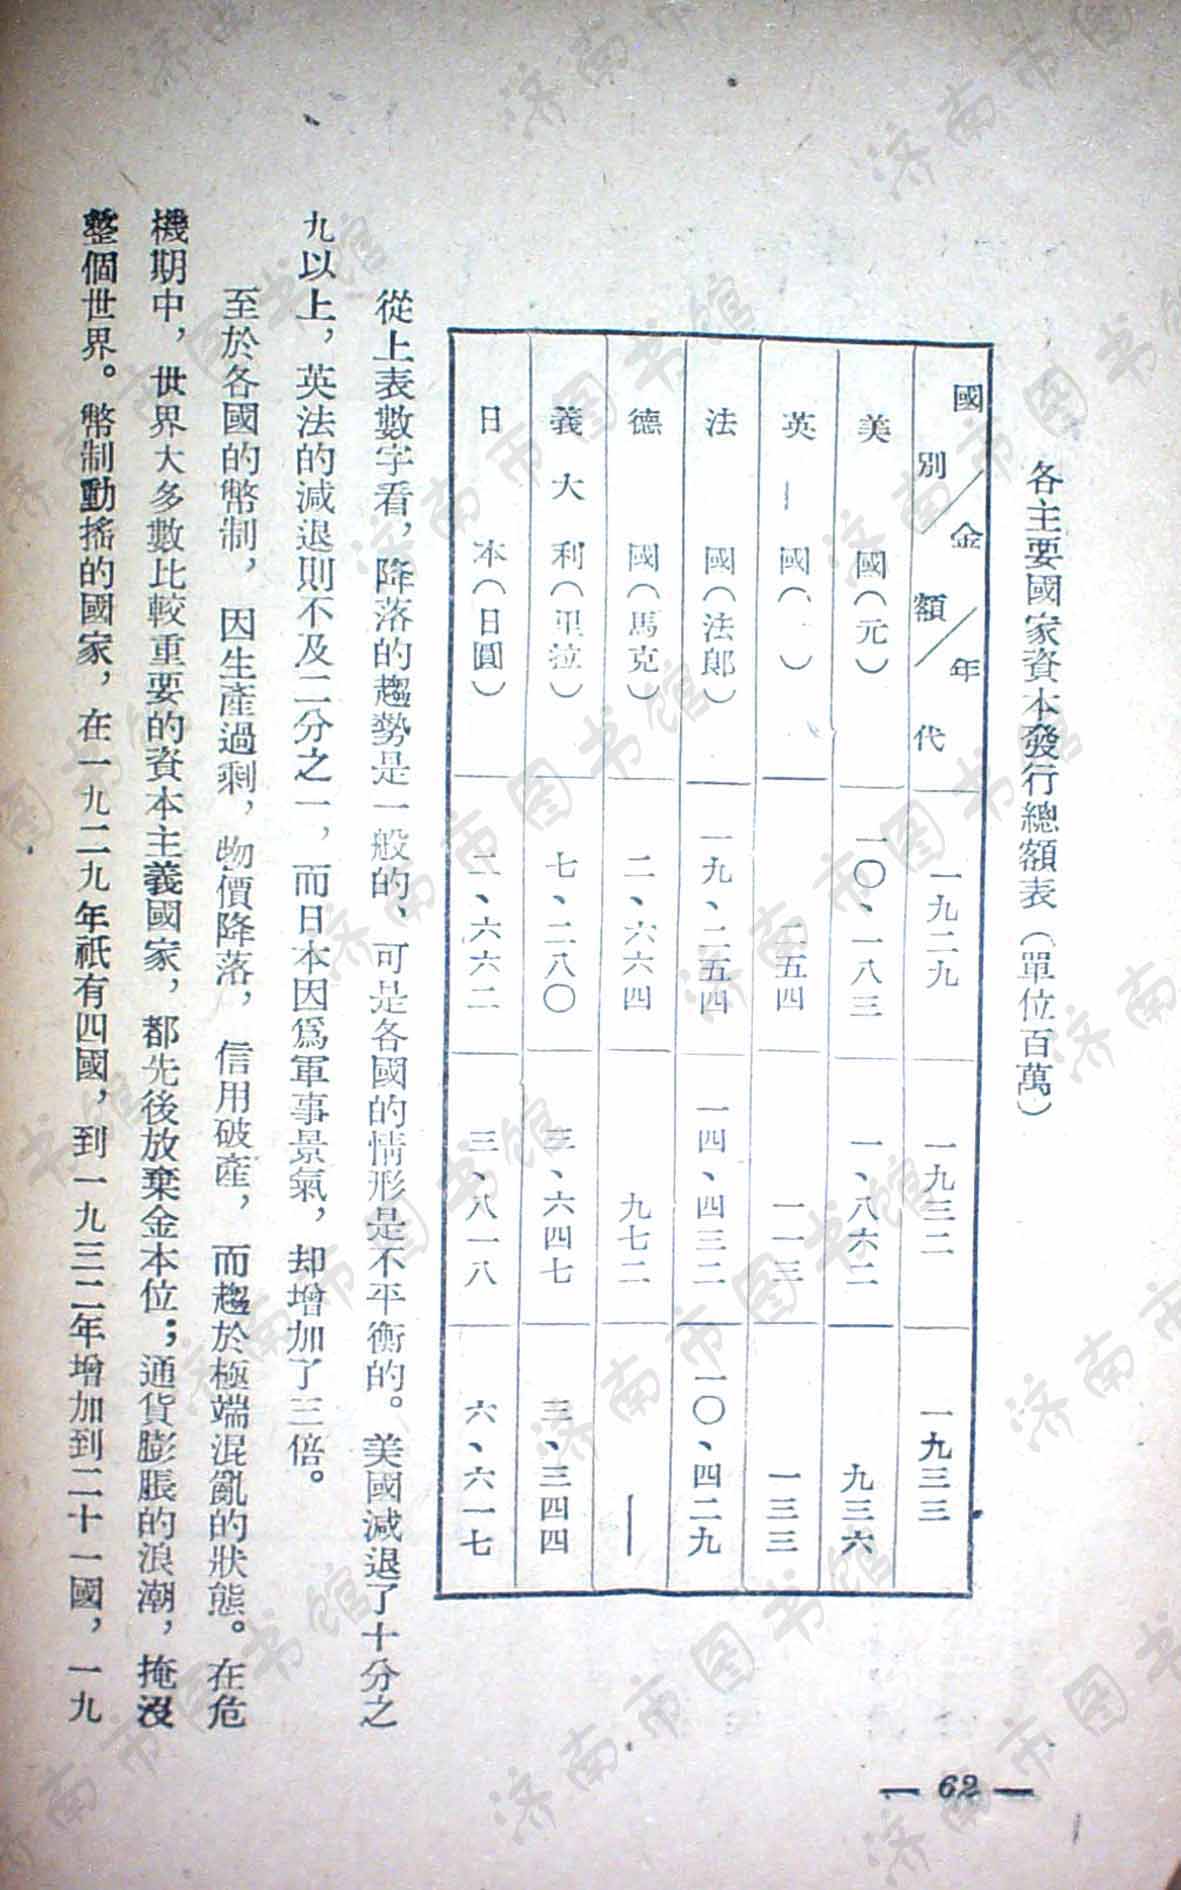 各主要國家資本發行總額表（單位百萬）
國別／金額／年代 一九二九 一九三二 一九三三
美國（元） 一〇、一八三 一、八六二 九三六
英國（ ） 二五四 一一三 一三三
法國（法郎） 一九、二五四 一四、四三二 一〇、四二九
德國（馬克） 二、六六四 九七二 —
義大利（里拉） 七、二八〇 三、六四七 三、三四四
日本（日圓） 二、六六二 三、八一八 六、六一七
從上表數字看，降落的趨勢是一般的、可是各國的情形是不平衡的。美國減退了十分之
九以上，英法的減退則不及二分之一，而日本因爲軍事景氣，却增加了三倍。
至於各國的幣制，因生產過剩，物價降落，信用破產，而趨於極端混亂的狀態。在危
機期中，世界大多數比較重要的資本主義國家，都先後放棄金本位；通貨膨脹的浪潮，掩沒
整個世界。幣制動搖的國家，在一九二九年祇有四國，到一九三二年增加到二十一國，一九
— 62 —
济南市图书馆